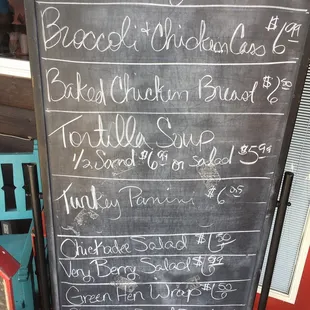 Broccoli + Chicken Cass $6.99
Baked Chicken Breast $6.50
Tortilla Soup
1/2 Sand $6.99 or salad $5.99
Turkey Panini $6.95
Chickadee Salad
Very Berry Salad
Green Hen Wrap